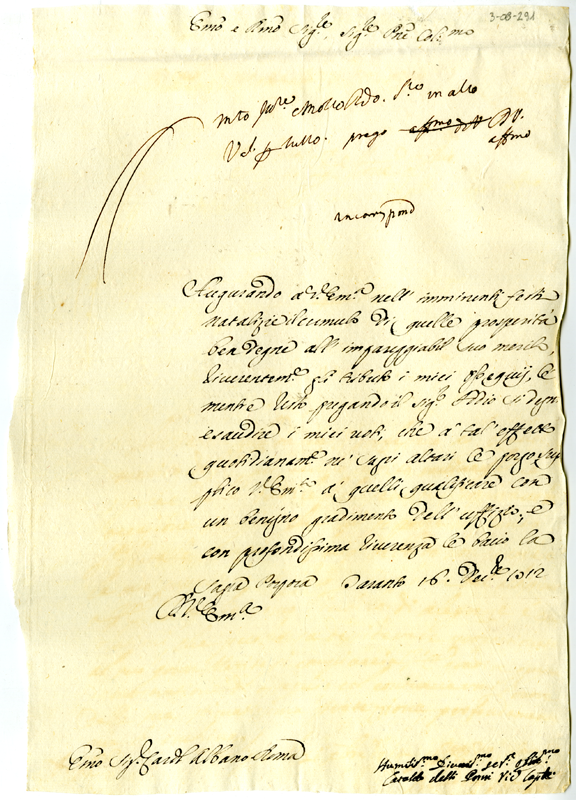 3-08-291
Emo e Rmo Sigre, Sigre Pne Colmo
mto Illre e Molto Rdo. in alto
V.S. tutto. prego
affmo
in corrispond
Augurando a V. Emza nell' imminenti feste
natalizie il cumulo di quelle prosperità
ben degne all' impareggiabil suo merito,
riverentemte gli tributo i miei ossequij, e
mentre resto pregando il Sigr Iddio si degni
esaudire i miei voti, che a' tal' effetto
quotidianamte ne' sagri altari le porgo, sup
plico V. Emza a' quelli qualificare con
un benigno gradimento dell' uffizio, e
con profondissima riverenza le bacio la
Sagra Porpora Taranto 16. Decre 1712
Di V. Emza
Emo Sigr Cardl Albano Roma
Humilismo Divmo servre
Cataldo delli Ponti Vic